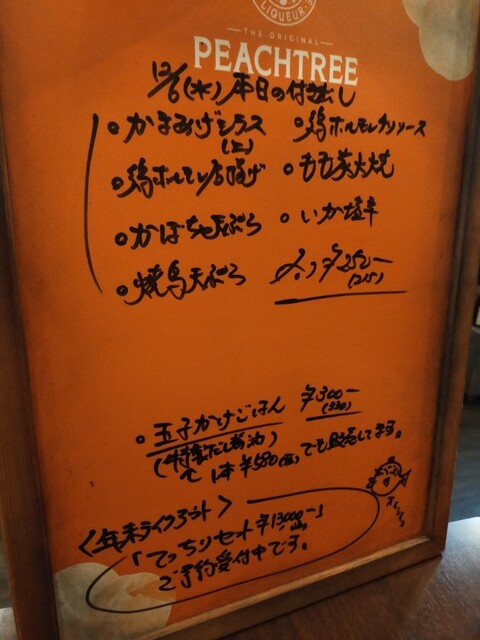 LIQUEUR
THE ORIGINAL
PEACHTREE
12/6(水)本日の付き出し
。かまあげシラス
。鶏ホルモンチリソース
。鶏ホルモン唐揚げ
。もも炭火焼
。かぼちゃ天ぷら
。いか塩辛
。焼鳥天ぷら
¥250-
。玉子かけごはん ¥300-
(330)
(特製だし醤油)
1本¥580 でも販売してます。
<年末テイクアウト>
「てっちりセット¥13000-」
ご予約受付中です。